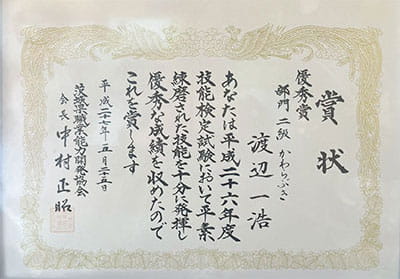 賞状
優秀賞
部門 二級 かわらぶき
渡辺一浩
あなたは平成二十六年度
技能検定試験において平素
練磨された技能を十分に発揮し
優秀な成績を収めたので
これを賞します
平成二十七年五月二十五日
茨城県職業能力開発協会
会長 中村正昭